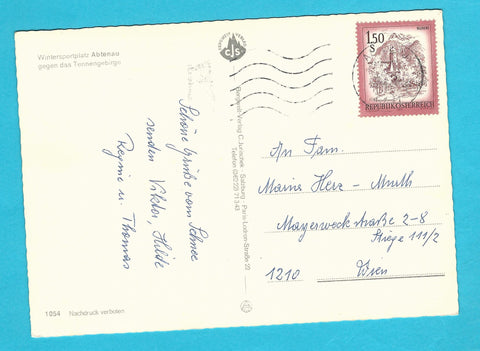 Wintersportplatz Abtenau
gegen das Tennengebirge
Schöne Grüße vom Schnee
senden Viktor, Hilde
Regine u. Thomas
1054 Nachdruck verboten
CJS
Verlag C. Jurischek · Salzburg · Paris-Lodron-Straße 20
Telefon
1,50
S
REPUBLIK ÖSTERREICH
An Fam.
Herz - Muth
Mayerweckstraße 2-8
Stiege 11/2
1210 Wien